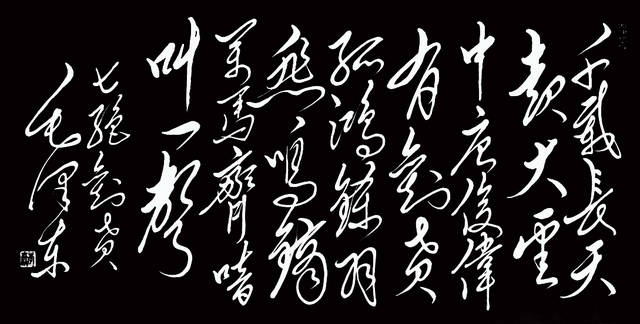 千載長天
起大雲
中唐俊偉
有劉蕡
孤鴻鎩羽
悲鳴鏑
萬馬齊喑
叫一聲
七絕劉蕡
毛澤東